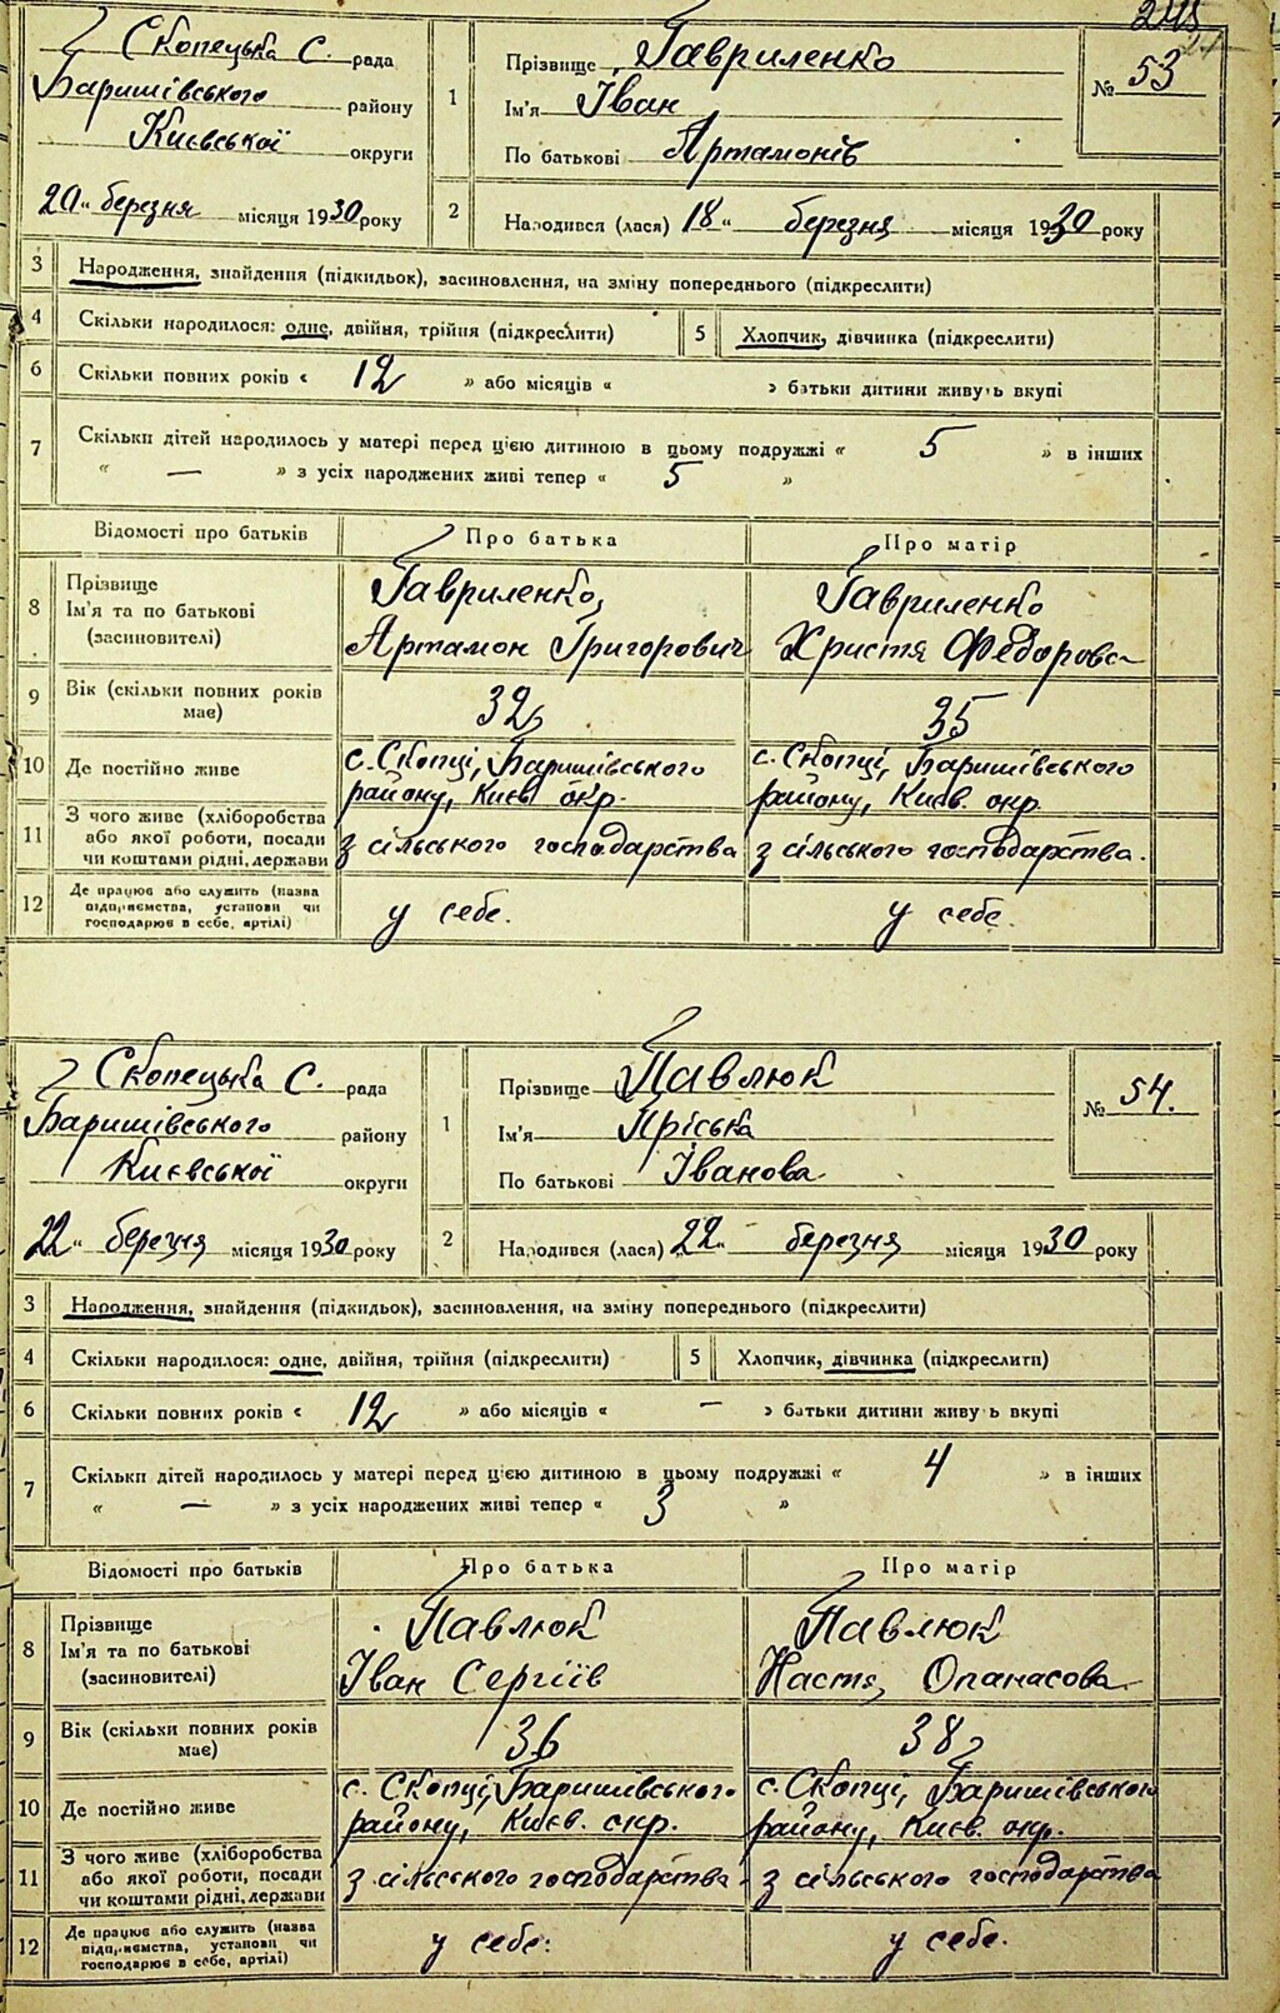 Скопецька С. рада
Баришівського району
Києвської округи
20 „ березня місяця 1930 року
1
Прізвище Гавриленко
Ім'я Іван
По батькові Артамонів
№ 53
2
Народився (лася) 18 „ березня місяця 1930 року
3 Народження, знайдення (підкидьок), засиновлення, на зміну попереднього (підкреслити)
4 Скільки народилося: одне, двійня, трійня (підкреслити) 5 Хлопчик, дівчинка (підкреслити)
6 Скільки повних років « 12 » або місяців « » батьки дитини живуть вкупі
7 Скільки дітей народилось у матері перед цією дитиною в цьому подружжі « 5 » в інших
« — » з усіх народжених живі тепер « 5 »
Відомості про батьків Про батька Про матір
8 Прізвище
Ім'я та по батькові
(засиновителі)
Гавриленко
Артамон Григорович
Гавриленко
Христя Федоровa
9 Вік (скільки повних років
має)
32
35
10 Де постійно живе
с. Скопці, Баришівського
району, Києв окр.
с. Скопці, Баришівського
району, Києв. окр.
11 З чого живе (хліборобства
або якої роботи, посади
чи коштами рідні, держави
з сільського господарства
з сільського господарства.
12 Де працює або служить (назва
підприємства, установи чи
господарює в себе, артілі)
у себе.
у себе.
Скопецька С. рада
Баришівського району
Києвської округи
22 „ березня місяця 1930 року
1
Прізвище Павлюк
Ім'я Пріська
По батькові Іванова
№ 54.
2
Народився (лася) „22„ березня місяця 1930 року
3 Народження, знайдення (підкидьок), засиновлення, на зміну попереднього (підкреслити)
4 Скільки народилося: одне, двійня, трійня (підкреслити) 5 Хлопчик, дівчинка (підкреслити)
6 Скільки повних років « 12 » або місяців « — » батьки дитини живуть вкупі
7 Скільки дітей народилось у матері перед цією дитиною в цьому подружжі « 4 » в інших
« — » з усіх народжених живі тепер « 3 »
Відомості про батьків Про батька Про матір
8 Прізвище
Ім'я та по батькові
(засиновителі)
Павлюк
Іван Сергіїв
Павлюк
Настя Опанасова
9 Вік (скільки повних років
має)
36
38
10 Де постійно живе
с. Скопці, Баришівського
району, Києв. окр.
с. Скопці, Баришівського
району, Києв. окр.
11 З чого живе (хліборобства
або якої роботи, посади
чи коштами рідні, держави
з сільського господарства
з сільського господарства
12 Де працює або служить (назва
підприємства, установи чи
господарює в себе, артілі)
у себе.
у себе.